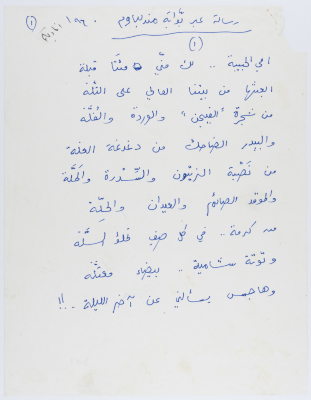 رسالة عبر بوّابة مندلباوم
١٩٦٠
(١)
(١)
امي الحبيبة .. لك منّي مئتا قبلة
ابعثها من بيتنا العالي على التلّة
من شجرة "الفيجن" والوردة والفُلّة
والبيدر الضاحك من دغدغة الغلة
من نَصْبة الزيتون والسّدرة والحَلّة
والموقد الصائم والعيدان والحِلّة
من كرمة .. في كل صيف تملؤ السلّة
وتوتة شامية .. بيضاء
وهاجس يسألني عن آخر الليلة ..!!